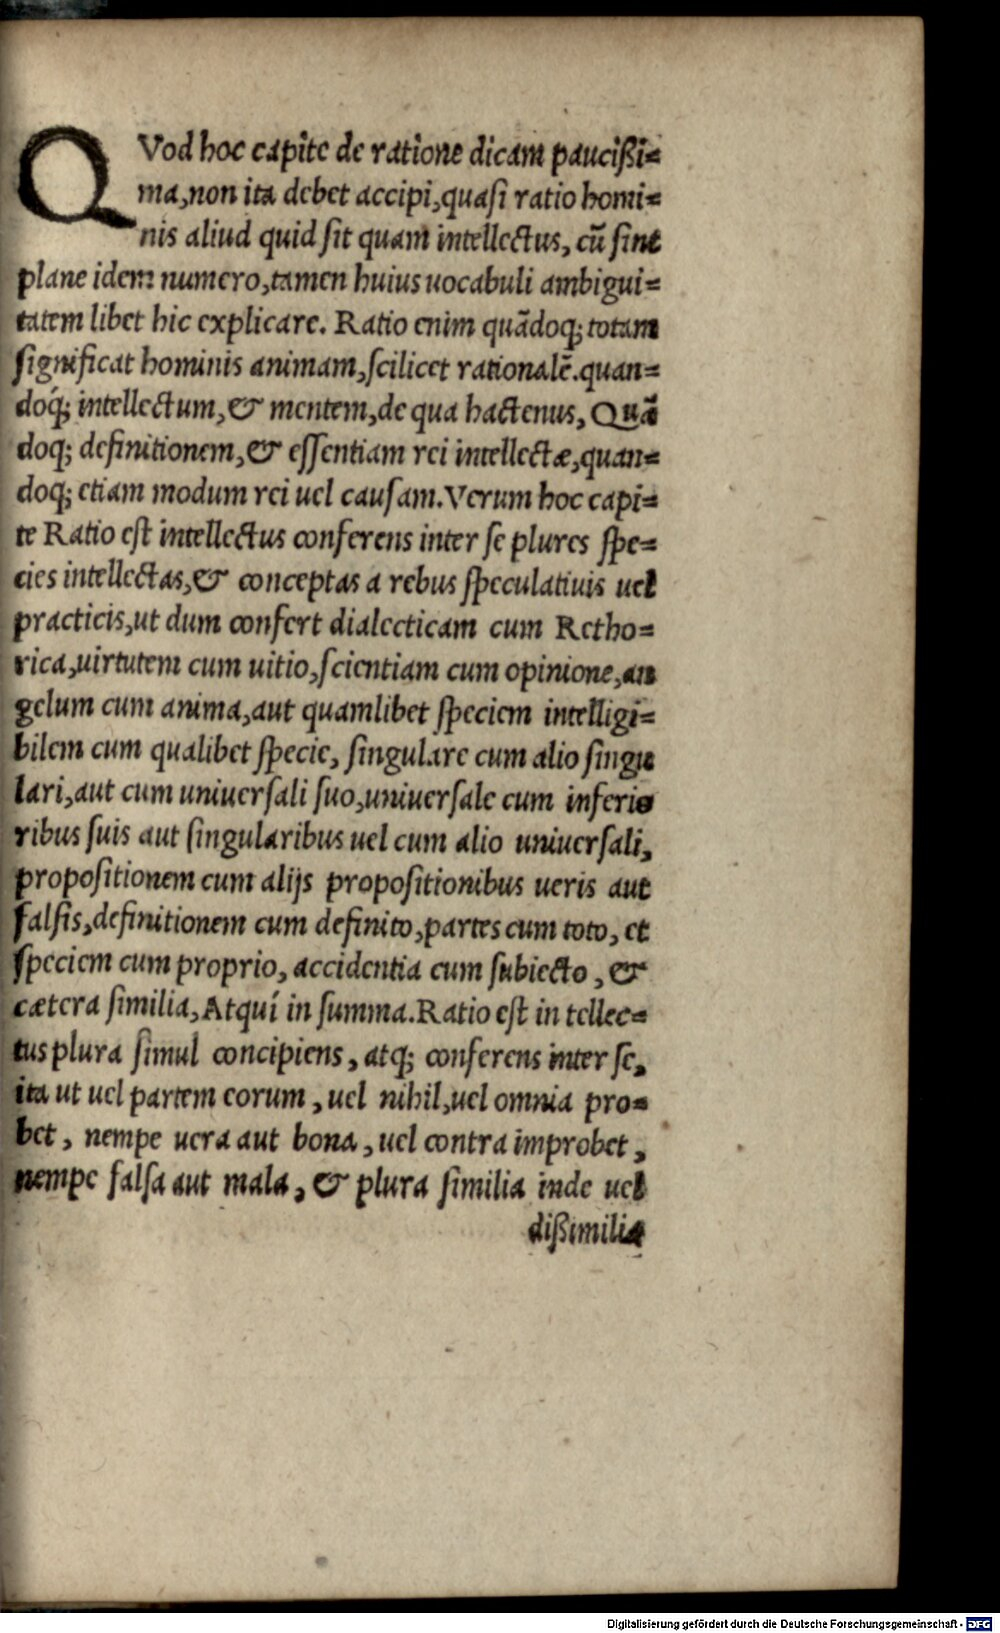 QVod hoc capite de ratione dicam paucißi=
ma, non ita debet accipi, quasi ratio homi=
nis aliud quid sit quam intellectus, cũ sint
plane idem numero, tamen huius uocabuli ambigui=
tatem libet hic explicare. Ratio enim quãdoq; totam
significat hominis animam, scilicet rationalẽ. quan=
doq́; intellectum, & mentem, de qua hactenus, Quã
doq; definitionem, & essentiam rei intellectæ, quan=
doq; etiam modum rei uel causam. Verum hoc capi=
te Ratio est intellectus conferens inter se plures spe=
cies intellectas, & conceptas a rebus speculatiuis uel
practicis, ut dum confert dialecticam cum Retho=
rica, uirtutem cum uitio, scientiam cum opinione, an
gelum cum anima, aut quamlibet speciem intelligi=
bilem cum qualibet specie, singulare cum alio singu
lari, aut cum uniuersali suo, uniuersale cum inferio
ribus suis aut singularibus uel cum alio uniuersali,
propositionem cum alijs propositionibus ueris aut
falsis, definitionem cum definito, partes cum toto, et
speciem cum proprio, accidentia cum subiecto, &
cætera similia, Atquí in summa. Ratio est in tellec=
tus plura simul concipiens, atq; conferens inter se,
ita ut uel partem eorum, uel nihil, uel omnia pro=
bet, nempe uera aut bona, uel contra improbet,
nempe falsa aut mala, & plura similia inde uel
dißimilia
Digitalisierung gefördert durch die Deutsche Forschungsgemeinschaft - DFG